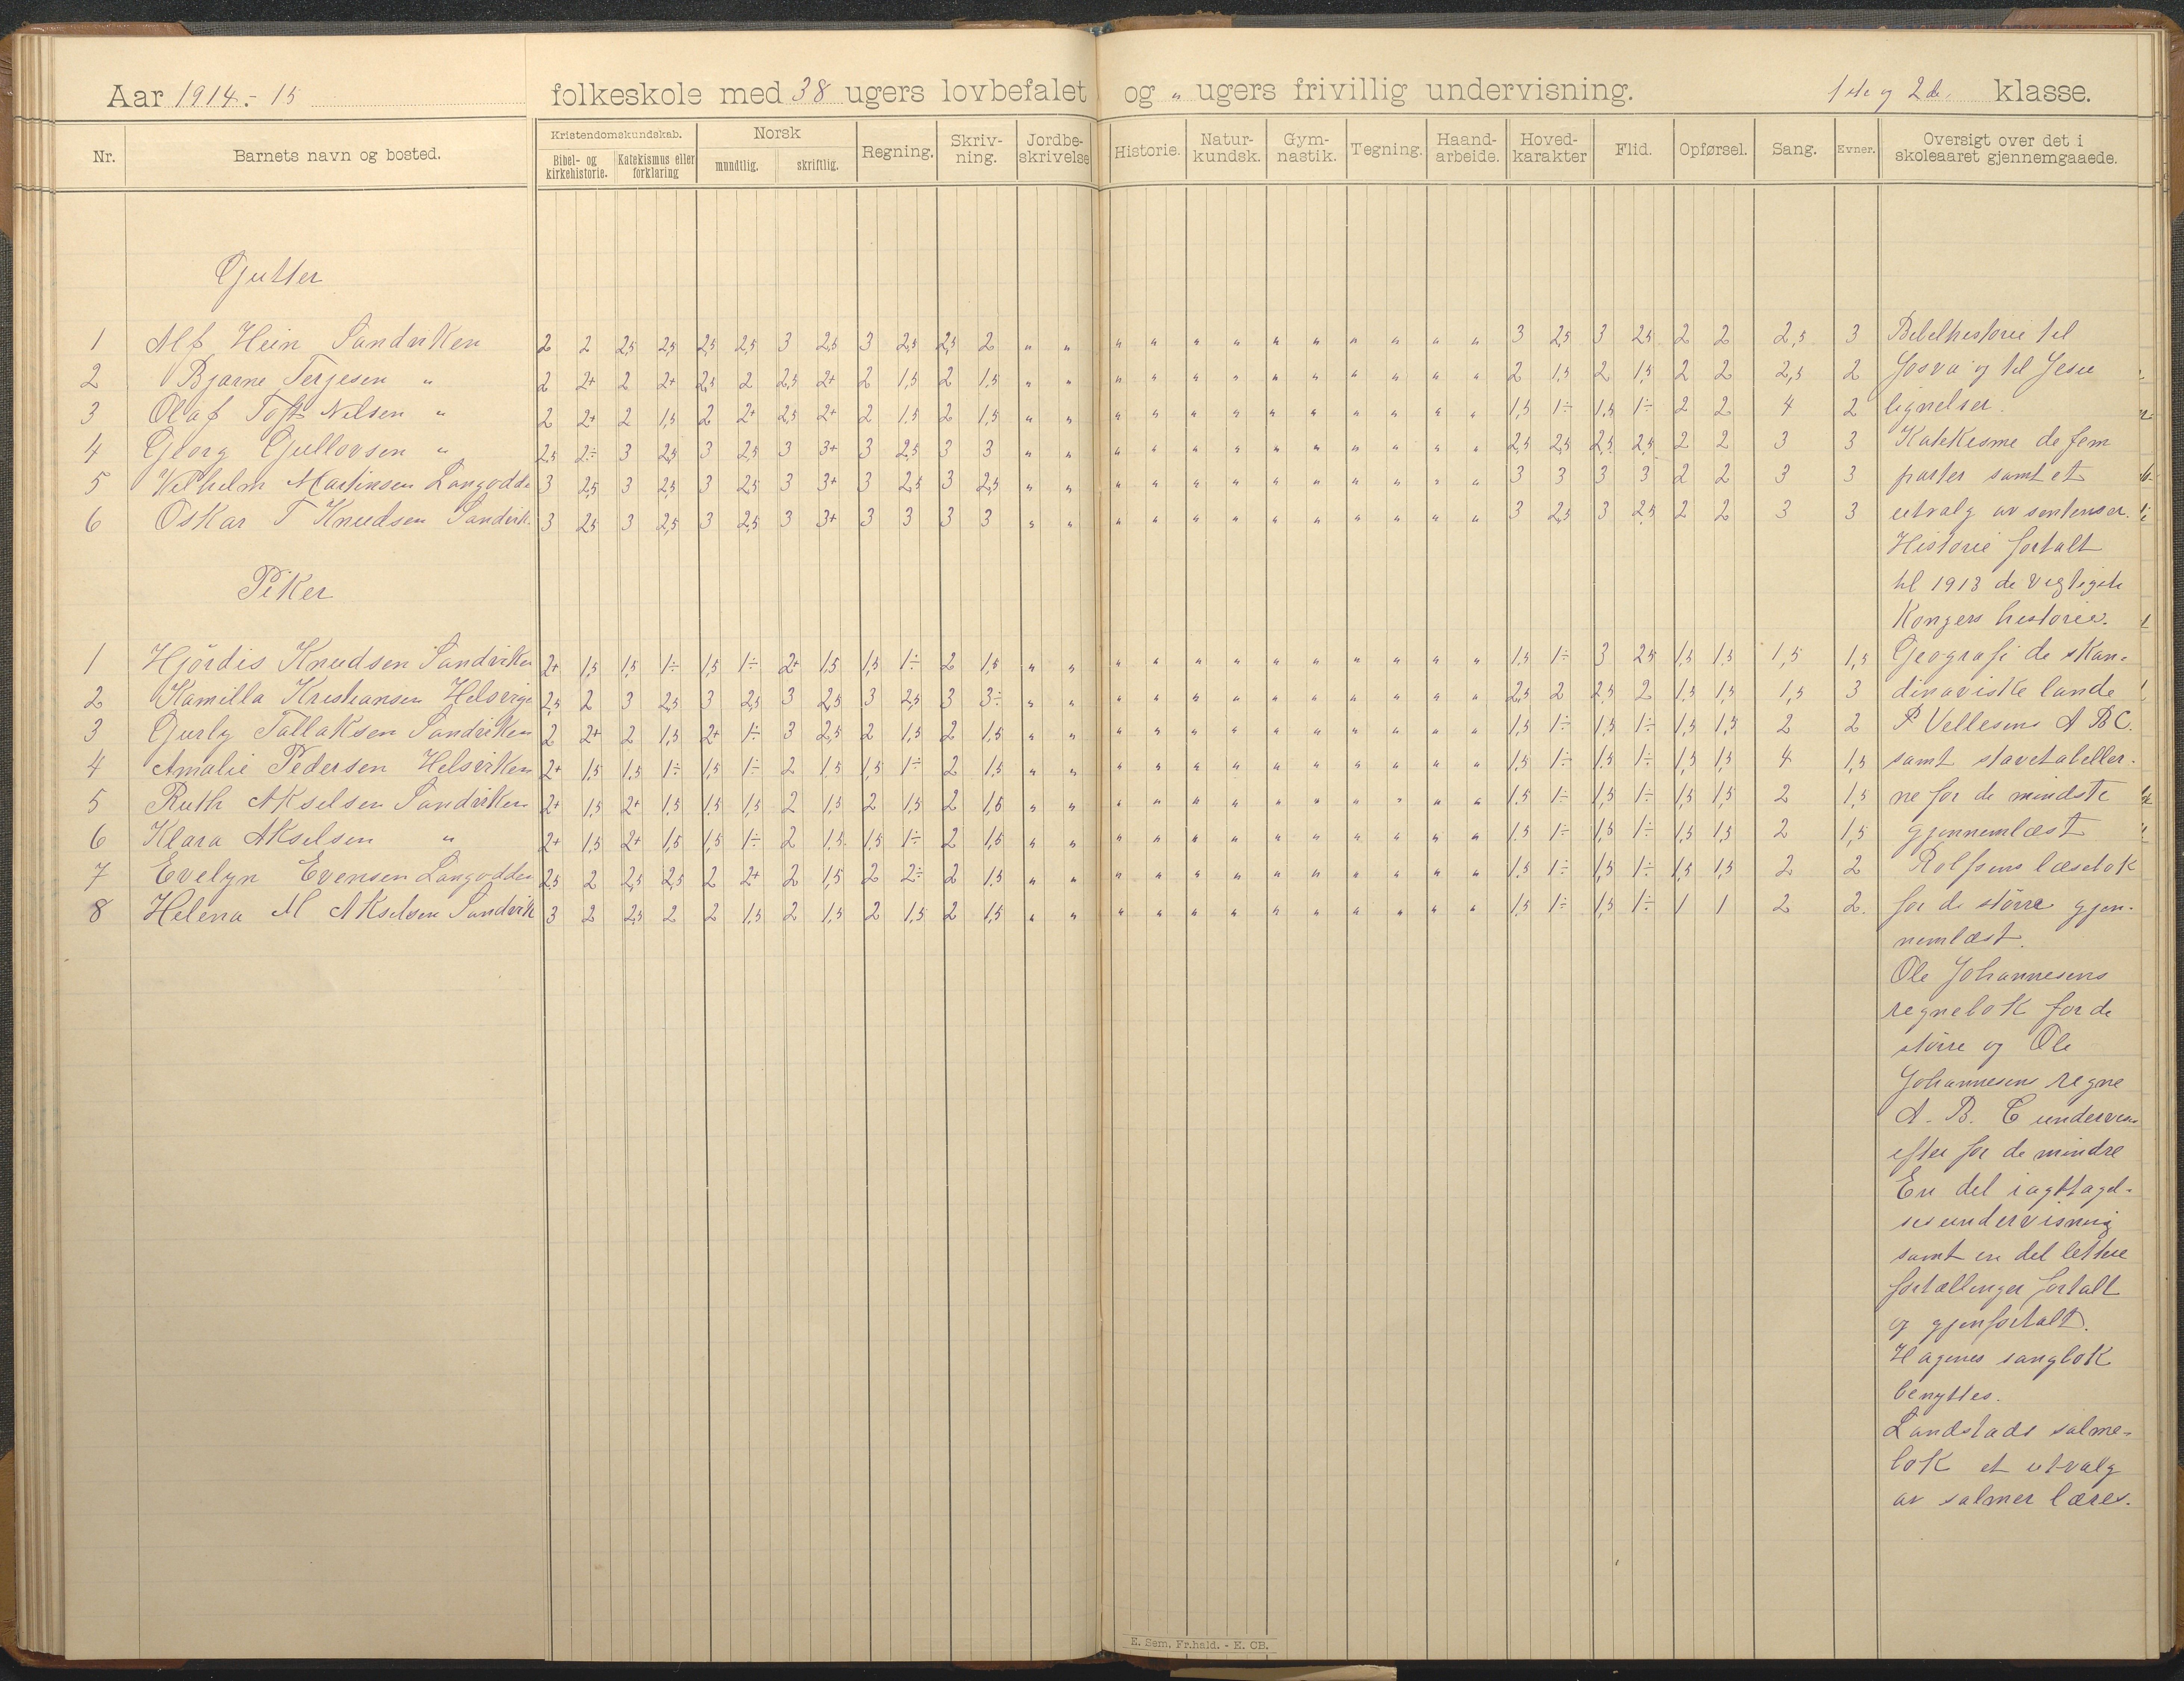 Aar 1914.-15 folkeskole med 38 ugers lovbefalet og " ugers frivillig undervisning. 1ste og 2de klasse.
Nr. Barnets navn og bosted. Kristendomskundskab. Bibel- og kirkehistorie. Katekismus eller forklaring Norsk mundtlig. skriftlig. Regning. Skriv-ning. Jordbe-skrivelse Historie. Natur-kundsk. Gym-nastik. Tegning. Haand-arbeide. Hoved-karakter Flid. Opførsel. Sang. Evner. Oversigt over det i skoleaaret gjennemgaaede.
Gutter
1 Alf Hein Sandviken 2 2 2,5 2,5 2,5 2,5 3 2,5 3 2,5 2,5 2 " " " " " " " " " " " " 3 2,5 3 2,5 2 2 2,5 3 Bibelhistorie til
2 Bjarne Terjesen " 2 2+ 2 2+ 2,5 2 2,5 2+ 2 1,5 2 1,5 " " " " " " " " " " " " 2 1,5 2 1,5 2 2 2,5 2 Josva og til Jesu
3 Olaf Toft Nilsen " 2 2+ 2 1,5 2 2+ 2,5 2+ 2 1,5 2 1,5 " " " " " " " " " " " " 1,5 1÷ 1,5 1÷ 2 2 4 2 lignelser.
4 Georg Gjullovsen " 2,5 2÷ 3 2,5 3 2,5 3 3+ 3 2,5 3 3 " " " " " " " " " " " " 2,5 2,5 2,5 2,5 2 2 3 3 Katekisme de fem
5 Vilhelm Martinsen Langodde 3 2,5 3 2,5 3 2,5 3 3+ 3 2,5 3 2,5 " " " " " " " " " " " " 3 3 3 3 2 2 3 3 parter samt et
6 Oskar T Knudsen Sandvik. 3 2,5 3 2,5 3 2,5 3 3+ 3 3 3 3 " " " " " " " " " " " " 3 2,5 3 2,5 2 2 3 3 utvalg av sentenser.
Historie fortalt
Piker
til 1913 de vigtigste
Kongers historie.
1 Hjördis Knudsen Sandviken 2+ 1,5 1,5 1÷ 1,5 1÷ 2+ 1,5 1,5 1÷ 2 1,5 " " " " " " " " " " " " 1,5 1÷ 3 2,5 1,5 1,5 1,5 1,5 Geografi de skan-
2 Kamilla Kristiansen Helsvige 2,5 2 3 2,5 3 2,5 3 2,5 3 2,5 3 3÷ " " " " " " " " " " " " 2,5 2 2,5 2 1,5 1,5 1,5 3 dinaviske lande
3 Gurly Tallaksen Sandviken 2 2+ 2 1,5 2+ 1÷ 3 2,5 2 1,5 2 1,5 " " " " " " " " " " " " 1,5 1÷ 1,5 1÷ 1,5 1,5 2 2 P Vellesens A B C.
4 Amalie Pedersen Helsviken 2+ 1,5 1,5 1÷ 1,5 1÷ 2 1,5 1,5 1÷ 2 1,5 " " " " " " " " " " " " 1,5 1÷ 1,5 1÷ 1,5 1,5 4 1,5 samt stavetabeller-
5 Ruth Akselsen Sandviken 2+ 1,5 2+ 1,5 1,5 1,5 2 1,5 2 1,5 2 1,5 " " " " " " " " " " " " 1,5 1÷ 1,5 1÷ 1,5 1,5 2 1,5 ne for de mindste
6 Klara Akselsen " 2+ 1,5 2+ 1,5 1,5 1÷ 2 1,5 1,5 1÷ 2 1,5 " " " " " " " " " " " " 1,5 1÷ 1,5 1÷ 1,5 1,5 2 1,5 gjennemlæst
7 Evelyn Evensen Langodden 2,5 2 2,5 2,5 2 2+ 2 1,5 2 2÷ 2 1,5 " " " " " " " " " " " " 1,5 1÷ 1,5 1÷ 1,5 1,5 2 2 Rolfsens læsebok
8 Helena M Akselsen Sandvik 3 2 2,5 2 2 1,5 2 1,5 2 1,5 2 1,5 " " " " " " " " " " " " 1,5 1÷ 1,5 1÷ 1 1 2 2. for de större gjen-
nemlæst.
Ole Johannesens
regnebok for de
större og Ole
Johannesens regne
A. B. C undervises
efter for de mindre
En del iagttagel-
sesundervisning
samt en del lettere
fortællinger fortalt
og gjenfortalt.
Hagenes sangbok
benyttes.
Landstads salme-
bok et utvalg
av salmer læres.
E. Sem. Fr.hald. - E. CB.